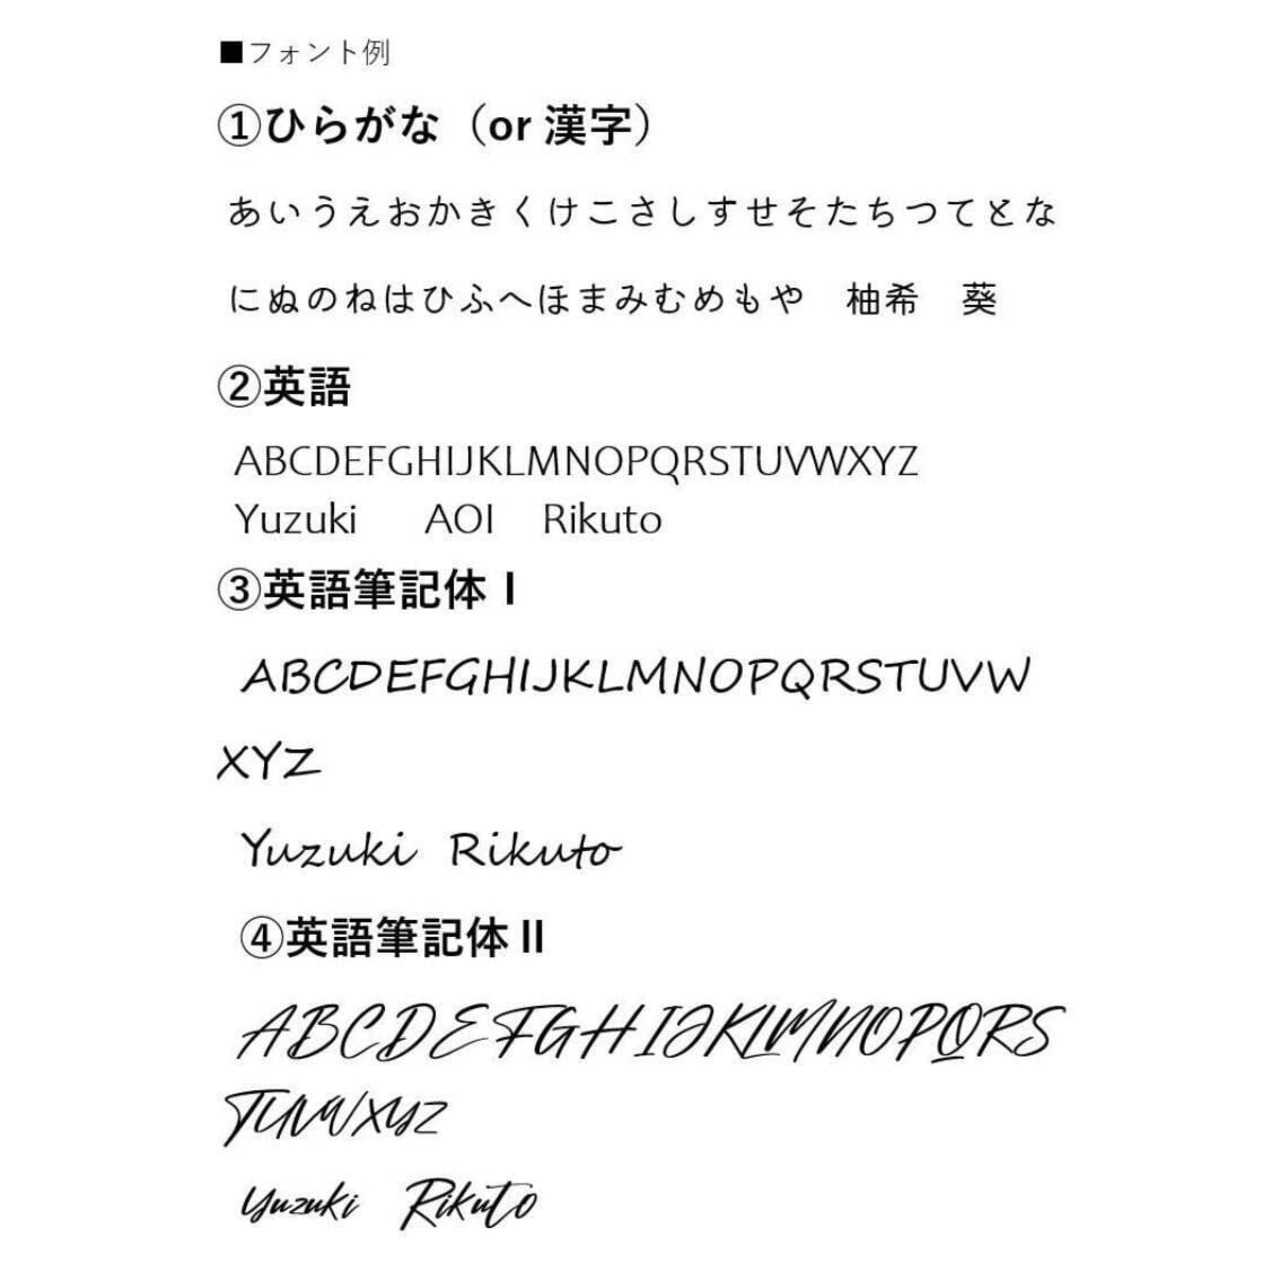 ■フォント例
①ひらがな（or 漢字）
あいうえおかきくけこさしすせそたちつてとな
にぬのねはひふへほまみむめもや　柚希　葵
②英語
ABCDEFGHIJKLMNOPQRSTUVWXYZ
Yuzuki　AOI　Rikuto
③英語筆記体Ⅰ
ABCDEFGHIJKLMNOPQRSTUVW
XYZ
Yuzuki Rikuto
④英語筆記体Ⅱ
ABCDEFGHIJKLMNOPQRS
TUVWXYZ
Yuzuki Rikuto